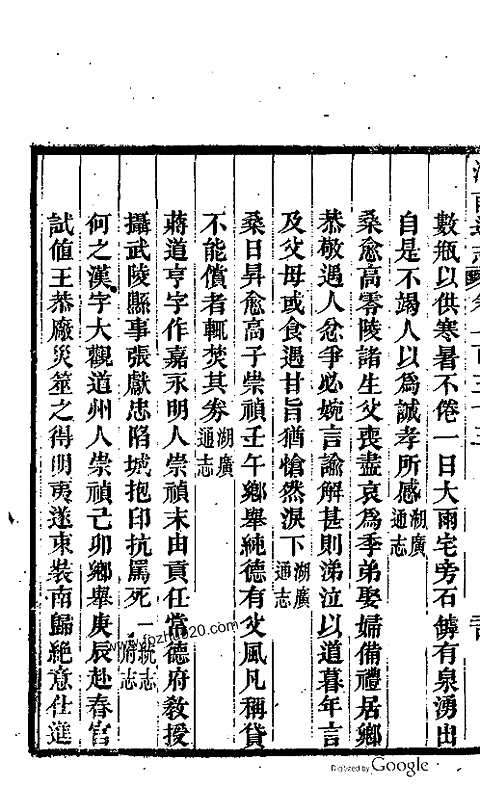 數瓶以供寒暑不倦一日大雨宅旁石罅有泉湧出
自是不竭人以為誠孝所感湖廣通志
桑愈高零陵諸生父喪盡哀為季弟娶婦備禮居鄉
恭敬遇人忿爭必婉言諭解甚則涕泣以道暮年言
及父母或食遇甘旨猶愴然淚下湖廣通志
桑日昇愈高子崇禎壬午鄉舉純德有父風凡稱貸
不能償者輒焚其券湖廣通志
蔣道亨字作嘉永明人崇禎末由貢任常德府教授
攝武陵縣事張獻忠陷城抱印抗罵死一統志府志
何之漢字大觀道州人崇禎己卯鄉舉庚辰赴春官
試值王恭廠災筮之得明夷遂束裝南歸絕意仕進
www.fozhu920.com
Digitized by Google